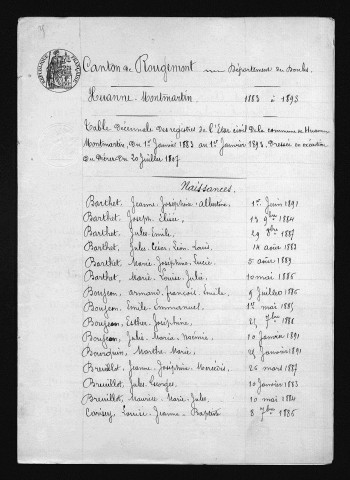 Canton de Rougemont Département du Doubs.
Huanne-Montmartin. 1883 à 1893
Table Décennale des registres de l'Etat civil de la commune de Huanne
Montmartin, du 1er Janvier 1883 au 1er Janvier 1893. Dressée en exécution
du Décret du 20 Juillet 1807
Naissances.
Barthet, Jeanne Joséphine Albertine, 1er Juin 1891
Barthet, Joseph, 13 9bre 1884
Barthet, Jules Emile, 29 1887
Barthet, Jules Léon Louis, 14 août 1883
Barthet, Marie Joséphine Lucie, 5 août 1883
Barthet, Marie Louise Julie, 10 mai 1886
Boujeon, Armand François Emile, 9 Juillet 1886
Boujeon, Emile Emmanuel, 1er mai 1885
Boujeon, Esther Joséphine, 25 7bre 1886
Boujeon, Julie Marie Noémie, 10 Janvier 1891
Bourquin, Marthe Marie, 25 Janvier 1891
Breuillot, Jeanne Joséphine Mercédès, 26 mars 1887
Breuillot, Jules Georges, 10 Janvier 1883
Breuillot, Maurice Marie Jules, 10 mai 1884
Louise Jeanne Baptiste 8 7bre 1886